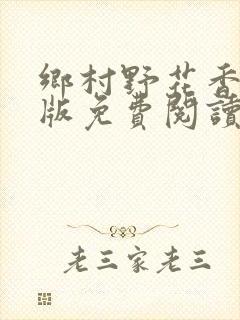 鄉村野花香
版免費閱讀
老三家老三